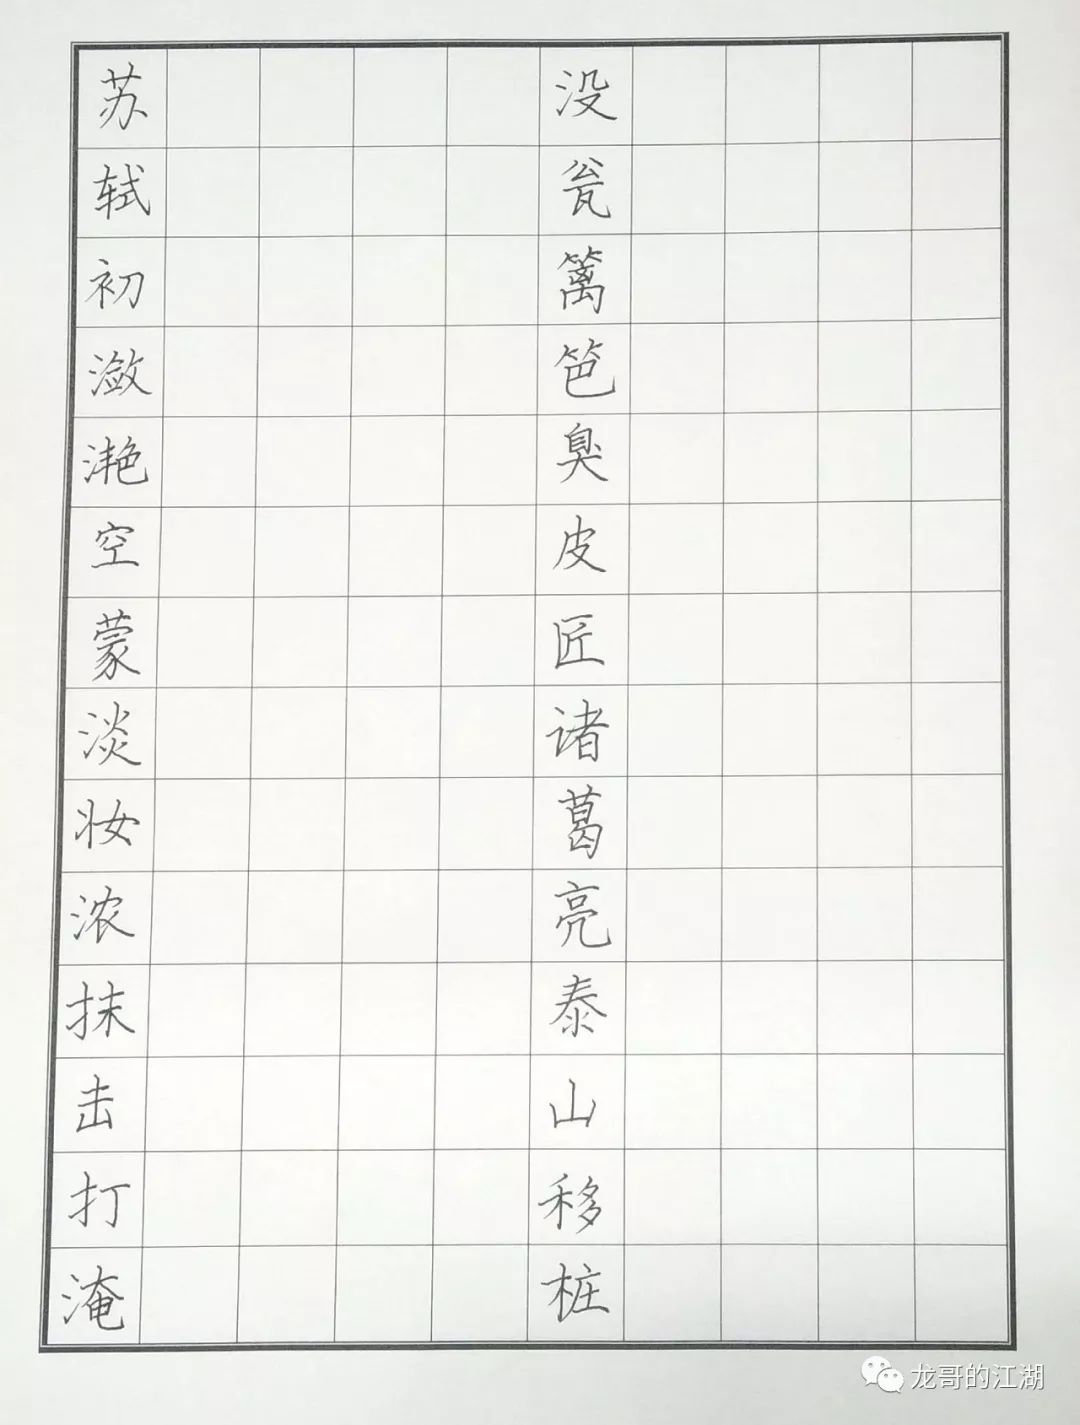 苏 没
轼 瓮
初 篱
潋 笆
滟 臭
空 皮
蒙 匠
淡 诸
妆 葛
浓 亮
抹 泰
击 山
打 移
淹 桩
龙哥的江湖